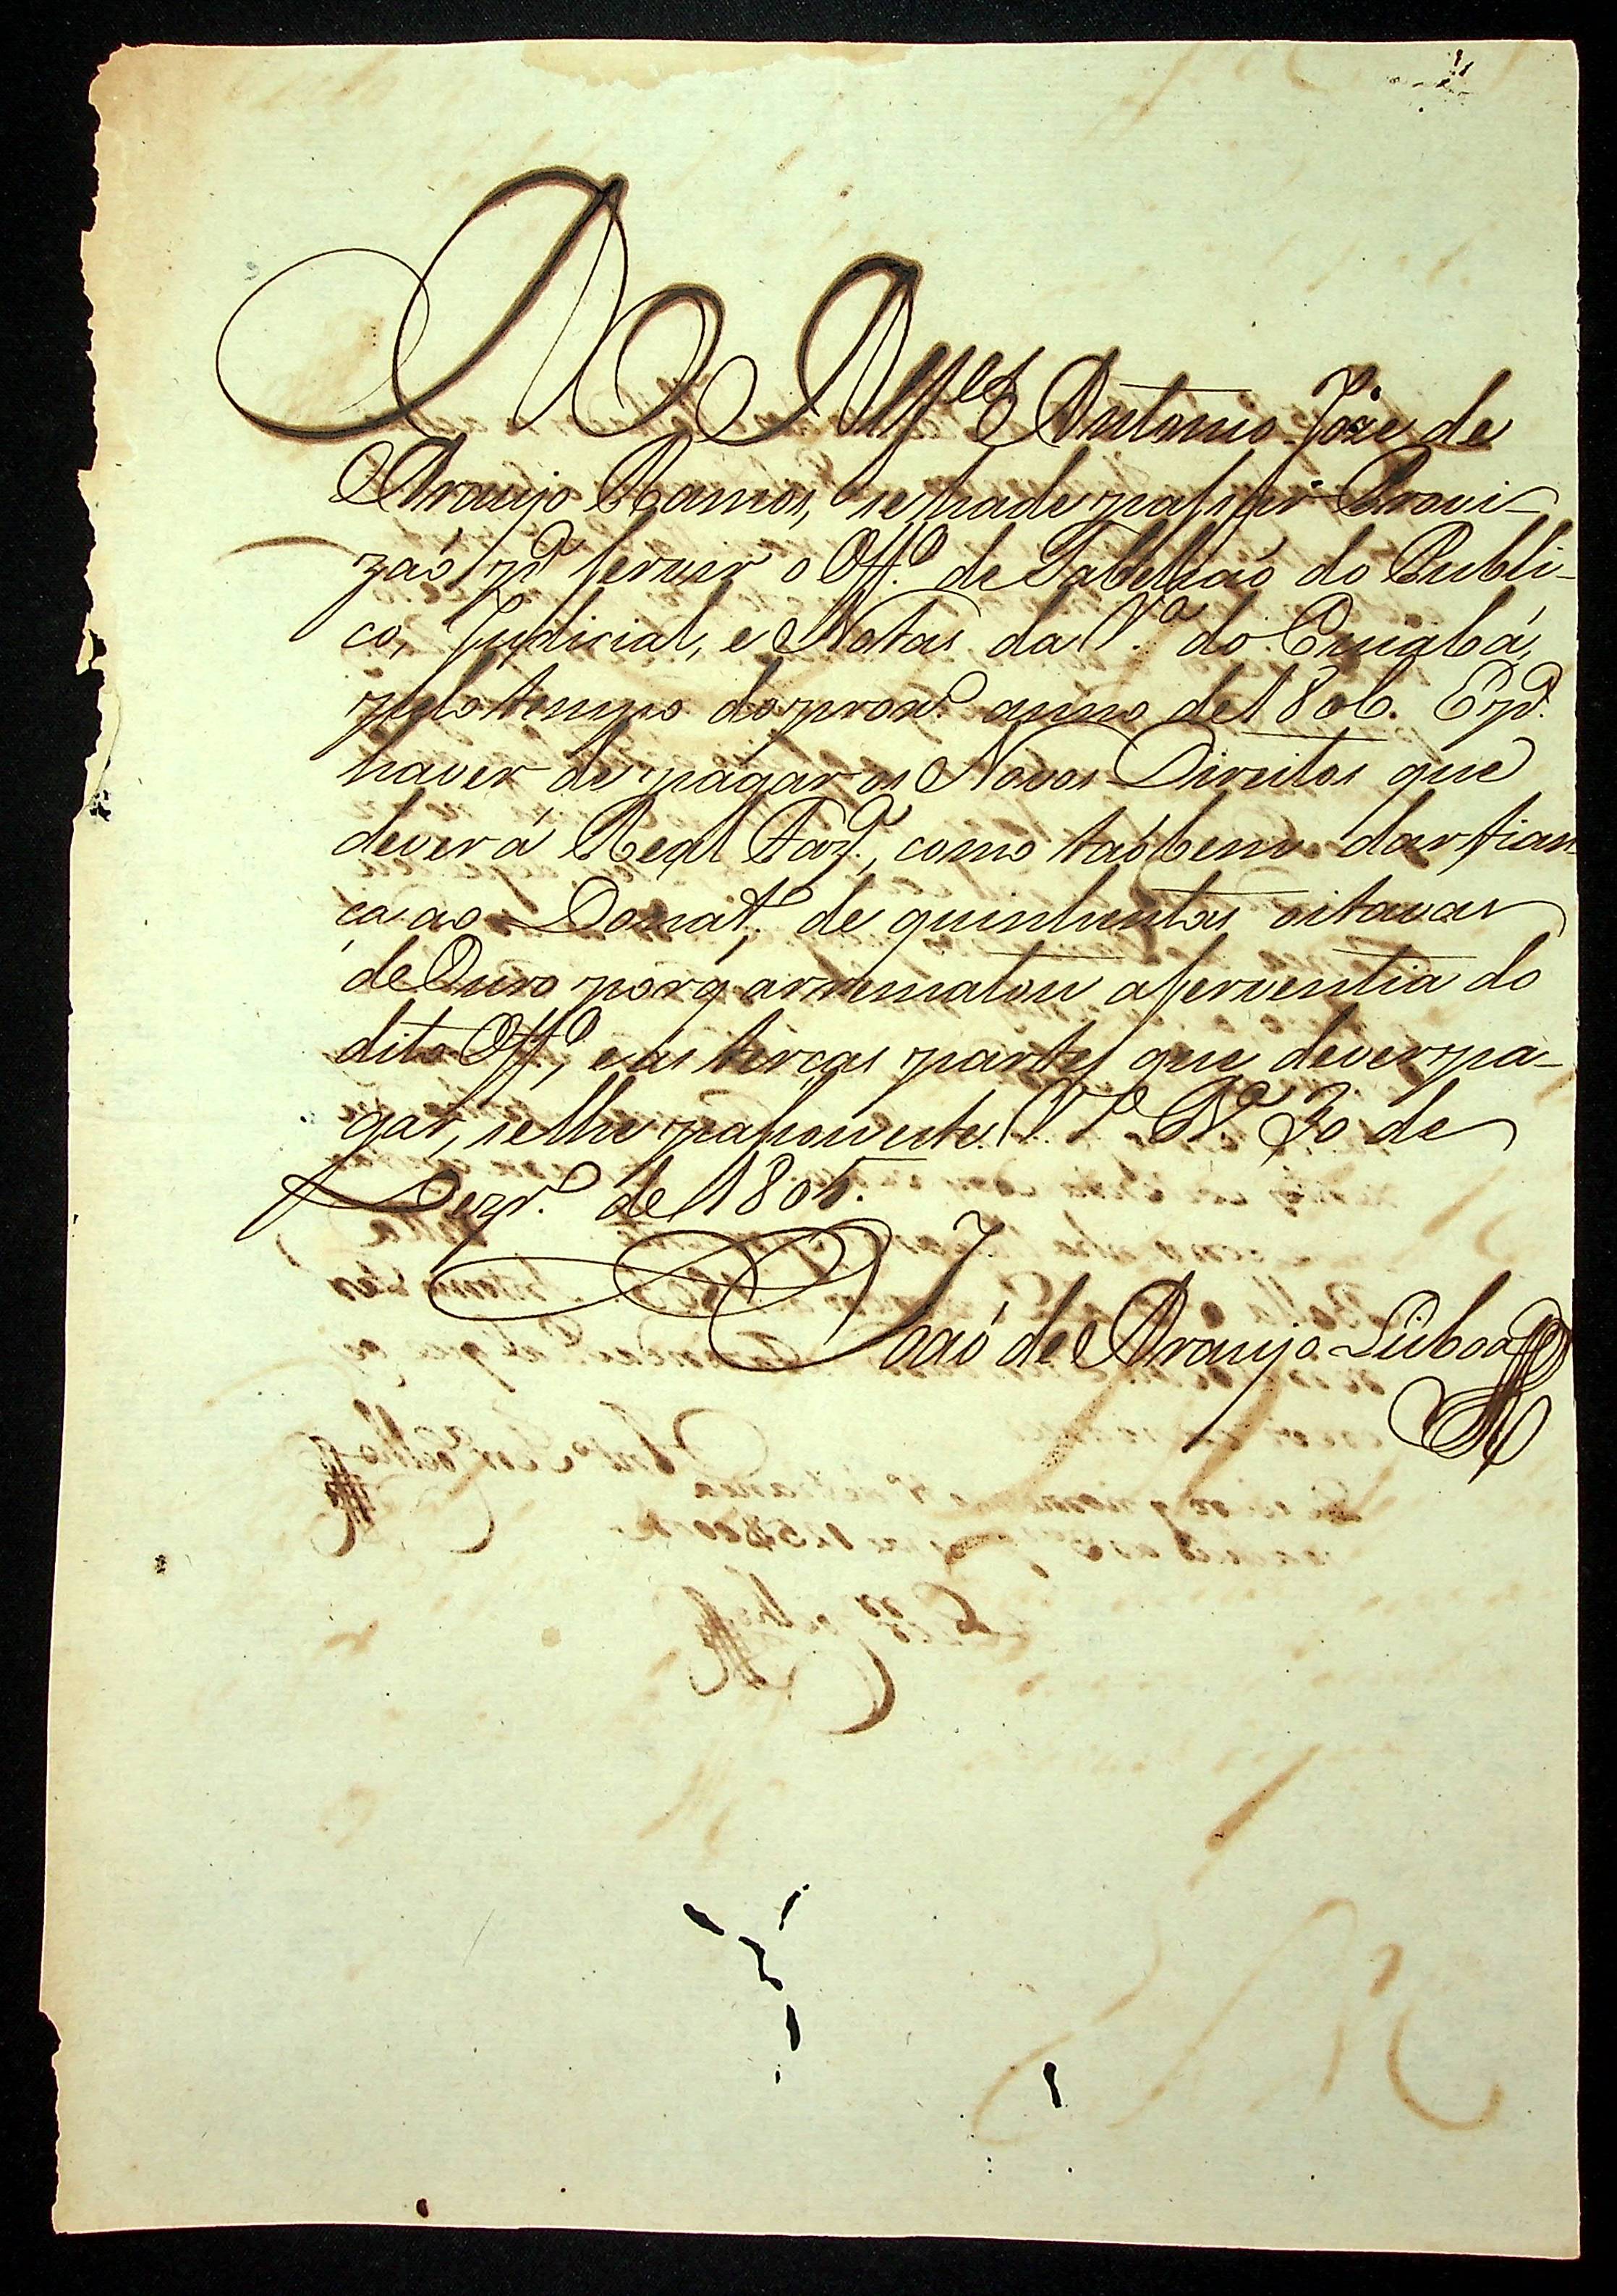 Ao Alferes Antonio Joze de
Araujo Ramos, se hade passar Provi-
zaó, pª servir o Offº de Tabeliaó do Publi-
co, Judicial, e Notas da Vª do Cuiabá,
pelo tempo do proxº anno de 1806. E pª
haver de págar os Novos Direitos que
dever á Real Fazª, como taóbem dar fian
ça ao Donatº de quinhentas oitavas
de Ouro porq̃ arrematou a serventia do
dito Offº, e as terças partes que dever pa-
gar, se lhe passou este. Vª Bª 30 de
Dezrº de 1805.
Joaó de Araujo Lisboa